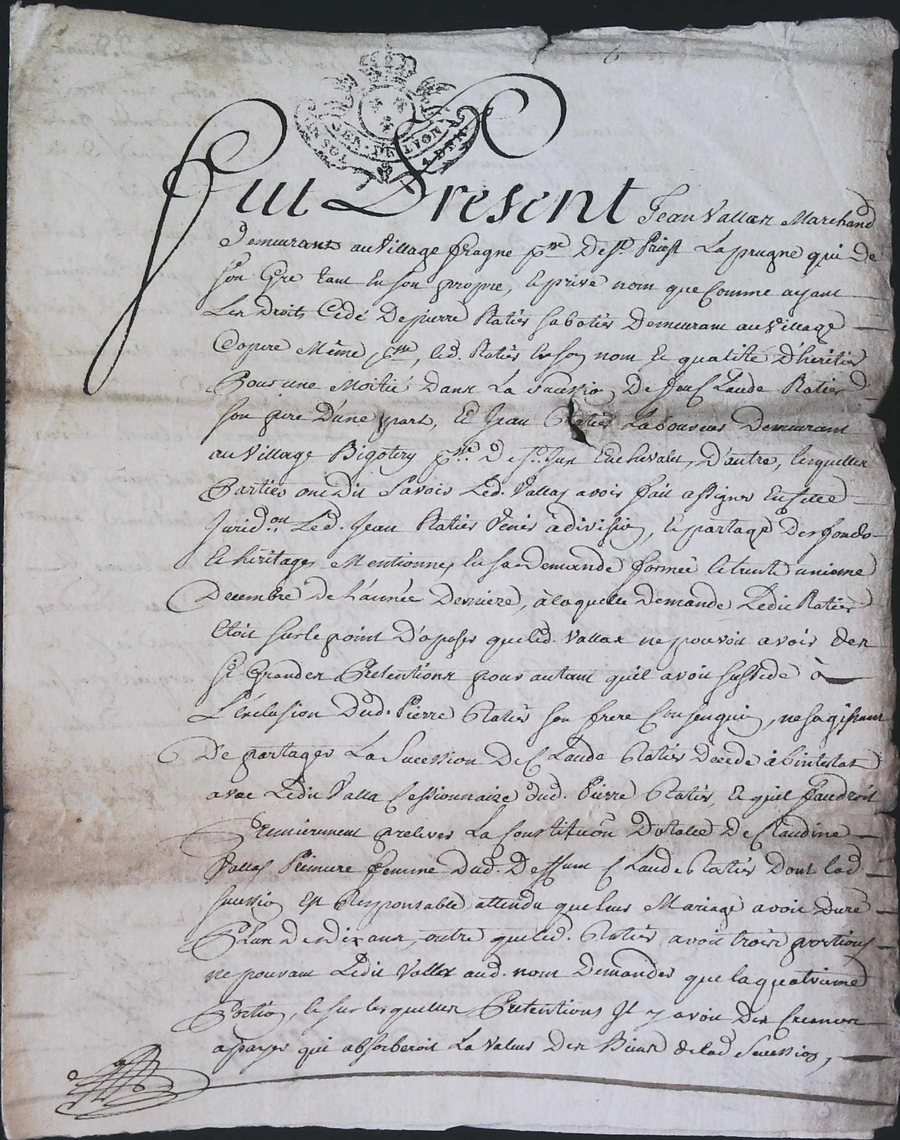 GEN. DE LYON
UN SOL 4 DEN
Fut Present Jean Vallas Marchand
demeurant au Village fragne psse De St. Priest Laprugne qui de
son Gré tant en son propre, & privé nom que Comme ayant
Les droits Cédé De pierre Ratiés sabotiés Demeurant au Village
même psse, led. Ratiés en son nom & qualité D'héritiés
Pour une Moitié dans La Sucessio De feu Claude Ratiés
son pere D'une part, Et Jean Ratiés Laboureur Demeurant
au Village Bigotiry psse De St. Just En chevalet, d'autre, lesquelles
Parties ont dit Savoir Led. Vallas avoir fait assigner En
Juridon Led. Jean Ratiés Venir à division, & partage Des fonds
& héritages Mentionnes En sa demande formée le trente unieme
Decembre de L'année Derniere, à laquelle demande Ledit Ratiés
Etoit sur le point D'oposer que led. Vallas ne pouvoit avoir des
Si Grandes Prétentions pour autant qu'el avoit suscedé à
L'Exclusion Dud. Pierre Ratiés son frere Consenguin, ne sagissant
De partager La Sucession De Claude Ratiés Décédé abintestat
avec Ledit Valla Cessionnaire dud. Pierre Ratiés, Et qu'el faudroit
Premièrement prelever La Constitution Dotalle De Claudine
Vallas Premiere femme Dud. Deffunt Claude Ratiés Dont lad
sucessio Est Responsable attendu que leur Mariage avoit Duré
Plus De dix ans, outre que led. Ratiés avoit trois portions
ne pouvant Ledit Vallas aud. nom Demander que la quatrieme
Portio, & sur lesquelles Prétentions Il y avoit Des Creances
a payer qui absorberoit La Valeur Des Biens de lad Sucession,